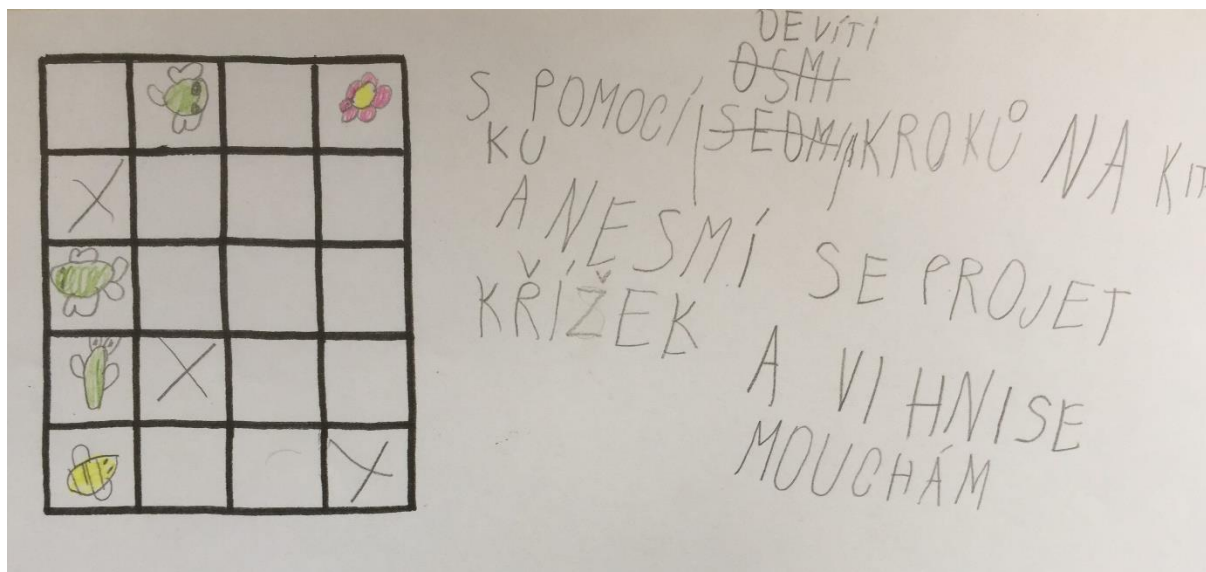 DEVÍTI
OSMI
S POMOCÍ SEDMI KROKŮ NA KIT
KU
A NESMÍ SE PROJET
KŘÍŽEK
A VIHNISE
MOUCHÁM